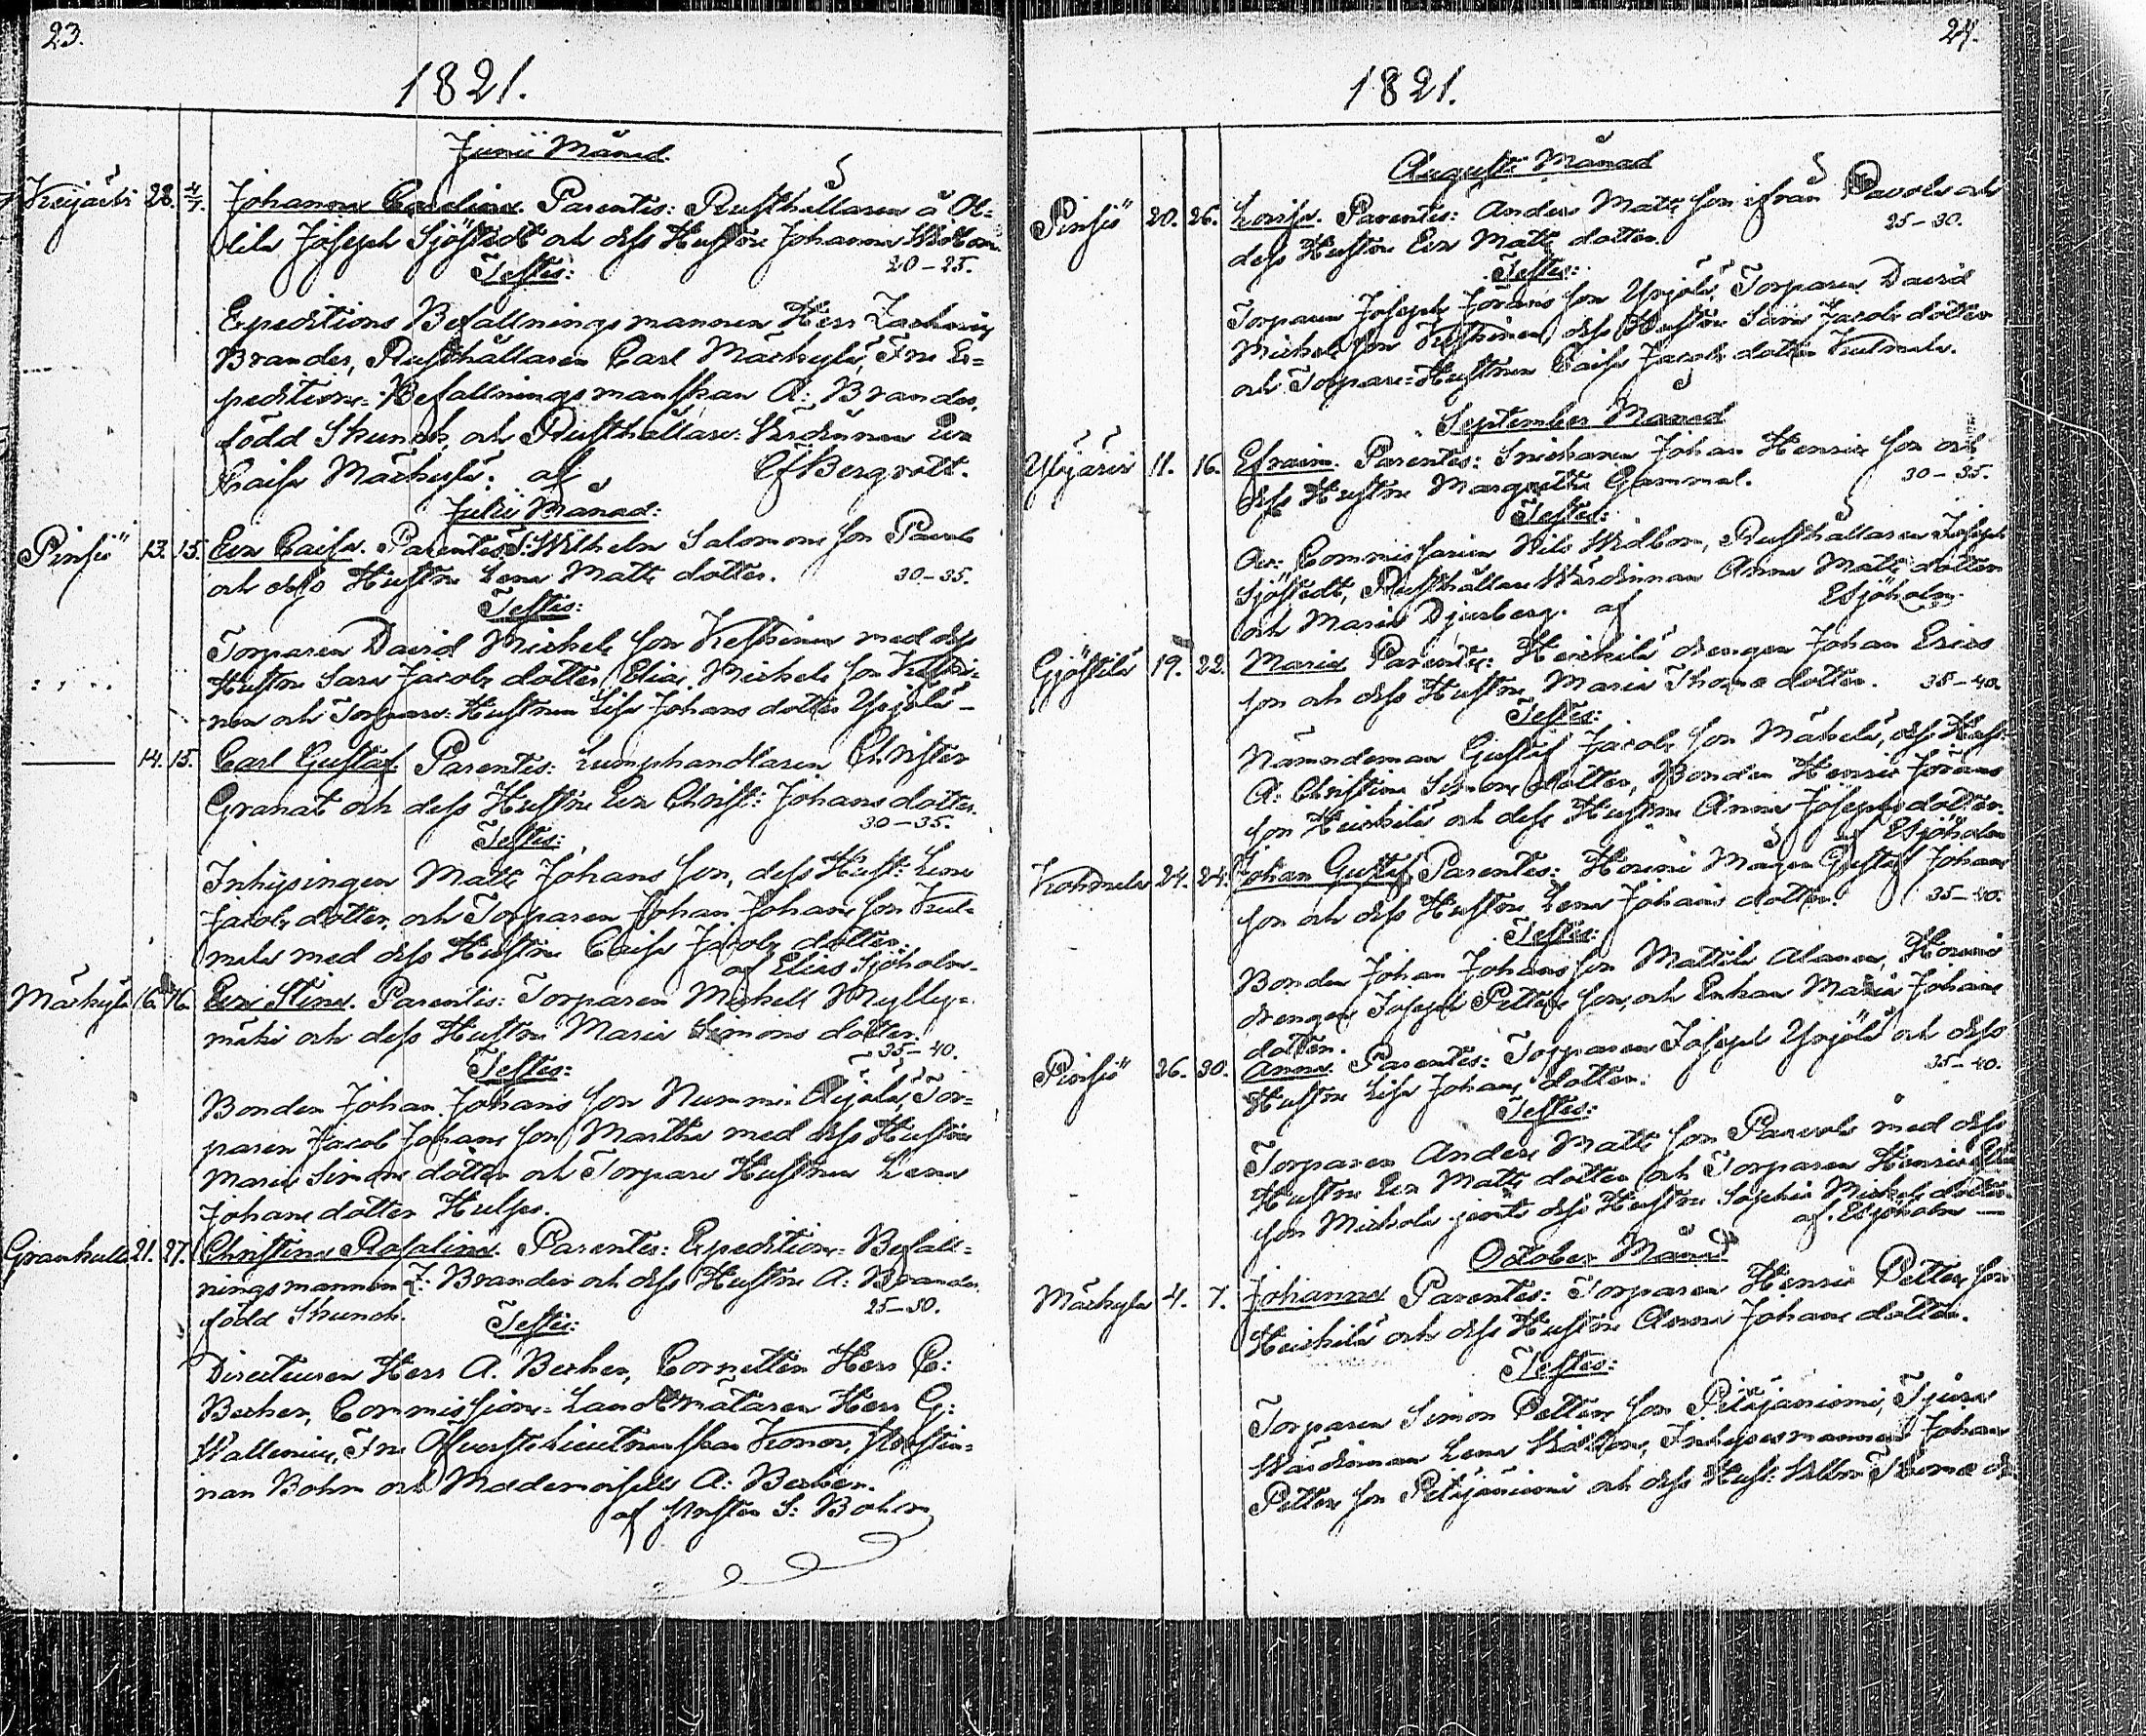 23.
1821.
Junii Månad.
28. 4/7. Johanna Carolina. Parentes: Rusthållaren å Ot=
tila Joseph Sjöstedt och dess Hustru Johanna Widbom.
20-25.
Testes:
Expeditions Befallningsmannen Herr Zacharias
Brander, Rusthållaren Carl Märkylä, Fru Ex=
peditions-Befallningsmanskan A: Brander,
född Skunck och Rusthållare-Wärdinnan Eva
Caisa Märkylä. af Cf Bergrott.
Julii Månad:
Pinsiö 13. 15. Eva Caisa. Parentes: T: Wilhelm Salomons son Pavola
och dess Hustru Lena Matts dotter. 30-35.
Testes:
Torparen David Michels son Keskinen med dess
Hustru Sara Jacobs dotter, Elias Michels son Keski=
nen och Torpare-Hustrun Lisa Johans dotter Yrjölä
14. 15. Carl Gustaf. Parentes: Lumphandlaren Christer
Granat och dess Hustru Eva Christ: Johans dotter.
30-35.
Testes:
Inhysingen Matts Johans son, dess Hust: Lena
Jacobs dotter, och Torparen Johan Johans son Kul=
mala med dess Hustru Caisa Jacobs dotter.
af Elias Sjöholm.
Märkylä 16. 16. Eva Stina. Parentes: Torparen Michell Mylly=
mäki och dess Hustru Maria Simons dotter.
35-40.
Testes:
Bonden Johan Johans son Nummi Äijälä, Tor=
paren Jacob Johans son Marttila med dess Hustru
Maria Simons dotter och Torpare Hustrun Lena
Johans dotter Hulpo.
Grankulla 21. 27. Christina Rosalina. Parentes: Expeditions-Befall=
ningsmannen Z: Brander och dess Hustru A: Brander
född Skunck. 25-30.
Testes:
Directeuren Herr A. Becker, Cornetten Herr C:
Becker, Commissions-Landtmätaren Herr G:
Wallenius, Fru Öfverste Lieutnantskan Konow, Prostin=
nan Bohm och Mademoiselle A: Becker.
af Prosten S: Bohm
24.
1821.
Augusti Månad
Pinsiö 20. 26. Lovisa. Parentes: Anders Matts son ifrån Pavola och
dess Hustru Eva Matts dotter. 25-30.
Testes:
Torparen Joseph Jörans son Yrjölä, Torparen David
Michels son Keskinen, dess Hustru Sara Jacobs dotter
och Torpare-Hustrun Caisa Jacobs dotter Kulmala.
September Månad
Ylöjärvi 11. 16. Efraim. Parentes: Snickaren Johan Henrics son och
dess Hustru Margretha Gammal. 30-35.
Testes:
Av: Commissarien Nils Widbom, Rusthållaren Joseph
Sjöstedt, Rusthållare Wärdinnan Anna Matts dotter
och Maria Djurberg. af ESjöholm.
Gjöttilä 19. 22. Maria Parentes: Heickilä drengen Johan Erics
son och dess Hustru Maria Thomæ dotter. 35-40.
Testes:
Nämndeman Gustaf Jacobs son Mäkelä, dess Hust:
A: Christina Simons dotter, Bonden Henric Jörans
son Heickilä och dess Hustru Anna Josephs dotter.
af ESjöholm
24. 24. Johan Gustaf. Parentes: Horeni Mågen Gustaf Johans
son och dess Hustru Lena Johans dotter. 35-40.
Testes:
Bonden Johan Johans son Mattila Alanen, Horeni
drengen Joseph Petters son, och Enkan Maria Johans
dotter.
Pinsiö 26. 30. Anna. Parentes: Torparen Joseph Yrjölä och dess
Hustru Lisa Johans dotter. 35-40.
Testes:
Torparen Anders Matts son Pavola med dess
Hustru Eva Matts dotter och Torparen Henric Elias
son Mickola jemte dess Hustru Sophia Michels dotter.
af. ESjöholm
October Månad
Märkylä 4. 7. Johanna Parentes: Torparen Henric Petters son
Heickilä och dess Hustru Anna Johans dotter.
Testes:
Torparen Simon Petters son Petäjäniemi, Tjura
Wärdinnan Lena Widbom, Inhysesmannen Johan
Petters son Petäjäniemi och dess Hust: Thomæ d